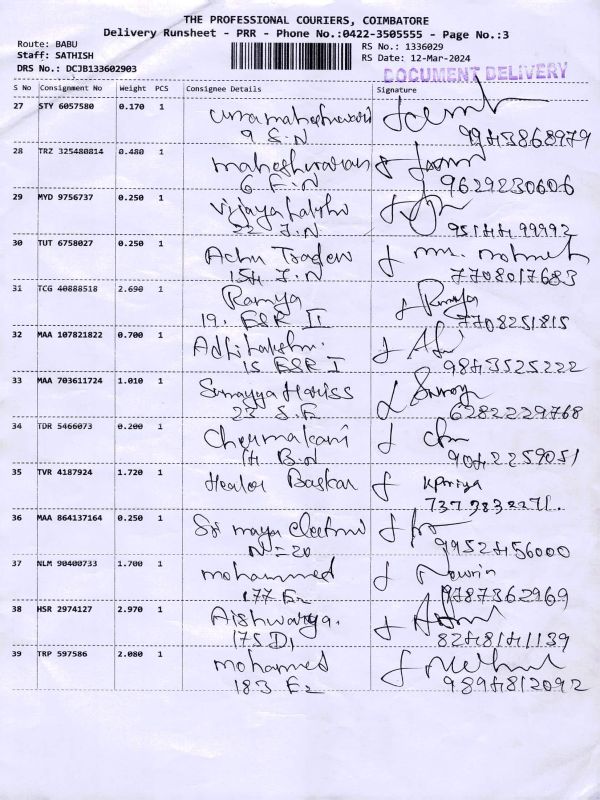 THE PROFESSIONAL COURIERS, COIMBATORE
Delivery Runsheet - PRR - Phone No.:0422-3505555 - Page No.:3
Route: BABU
Staff: SATHISH
DRS No.: DCJB133602903
RS No.: 1336029
RS Date: 12-Mar-2024
DOCUMENT DELIVERY
S No Consignment No Weight PCS Consignee Details Signature
27 STY 6057580 0.170 1 umamaheshwari
9 S.N 9943868979
28 TRZ 325480814 0.480 1 maheshwaran
6 E.N 9629230606
29 MYD 9756737 0.250 1 Vijayalakshi
22 J.N 9514499992
30 TUT 6758027 0.250 1 Achu Traders
154 J.N 7708017683
31 TCG 40888518 2.690 1 Ramya Ramya
19. ESR II 7708251815
32 MAA 107821822 0.700 1 Adhilakshmi.
15 ESR I 9843525222
33 MAA 703611724 1.010 1 Sumayya Hariss
23 S.E 6282229768
34 TDR 5466073 0.200 1
14 B.N 9042259051
35 TVR 4187924 1.720 1 Baskar Kpriya
36 MAA 864137164 0.250 1 Sri maya
N-20 9952456000
37 NLM 90400733 1.700 1 mohammed
177 E2 9787362969
38 HSR 2974127 2.970 1 Aishwarya.
175 D1 8248141139
39 TRP 597586 2.080 1 mohamed
183 E2 9894812092